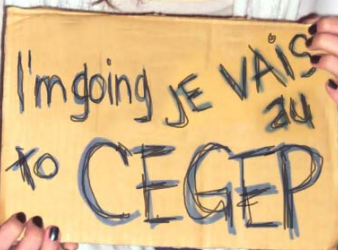 I'm going JE VAiS
to au
CEGEP